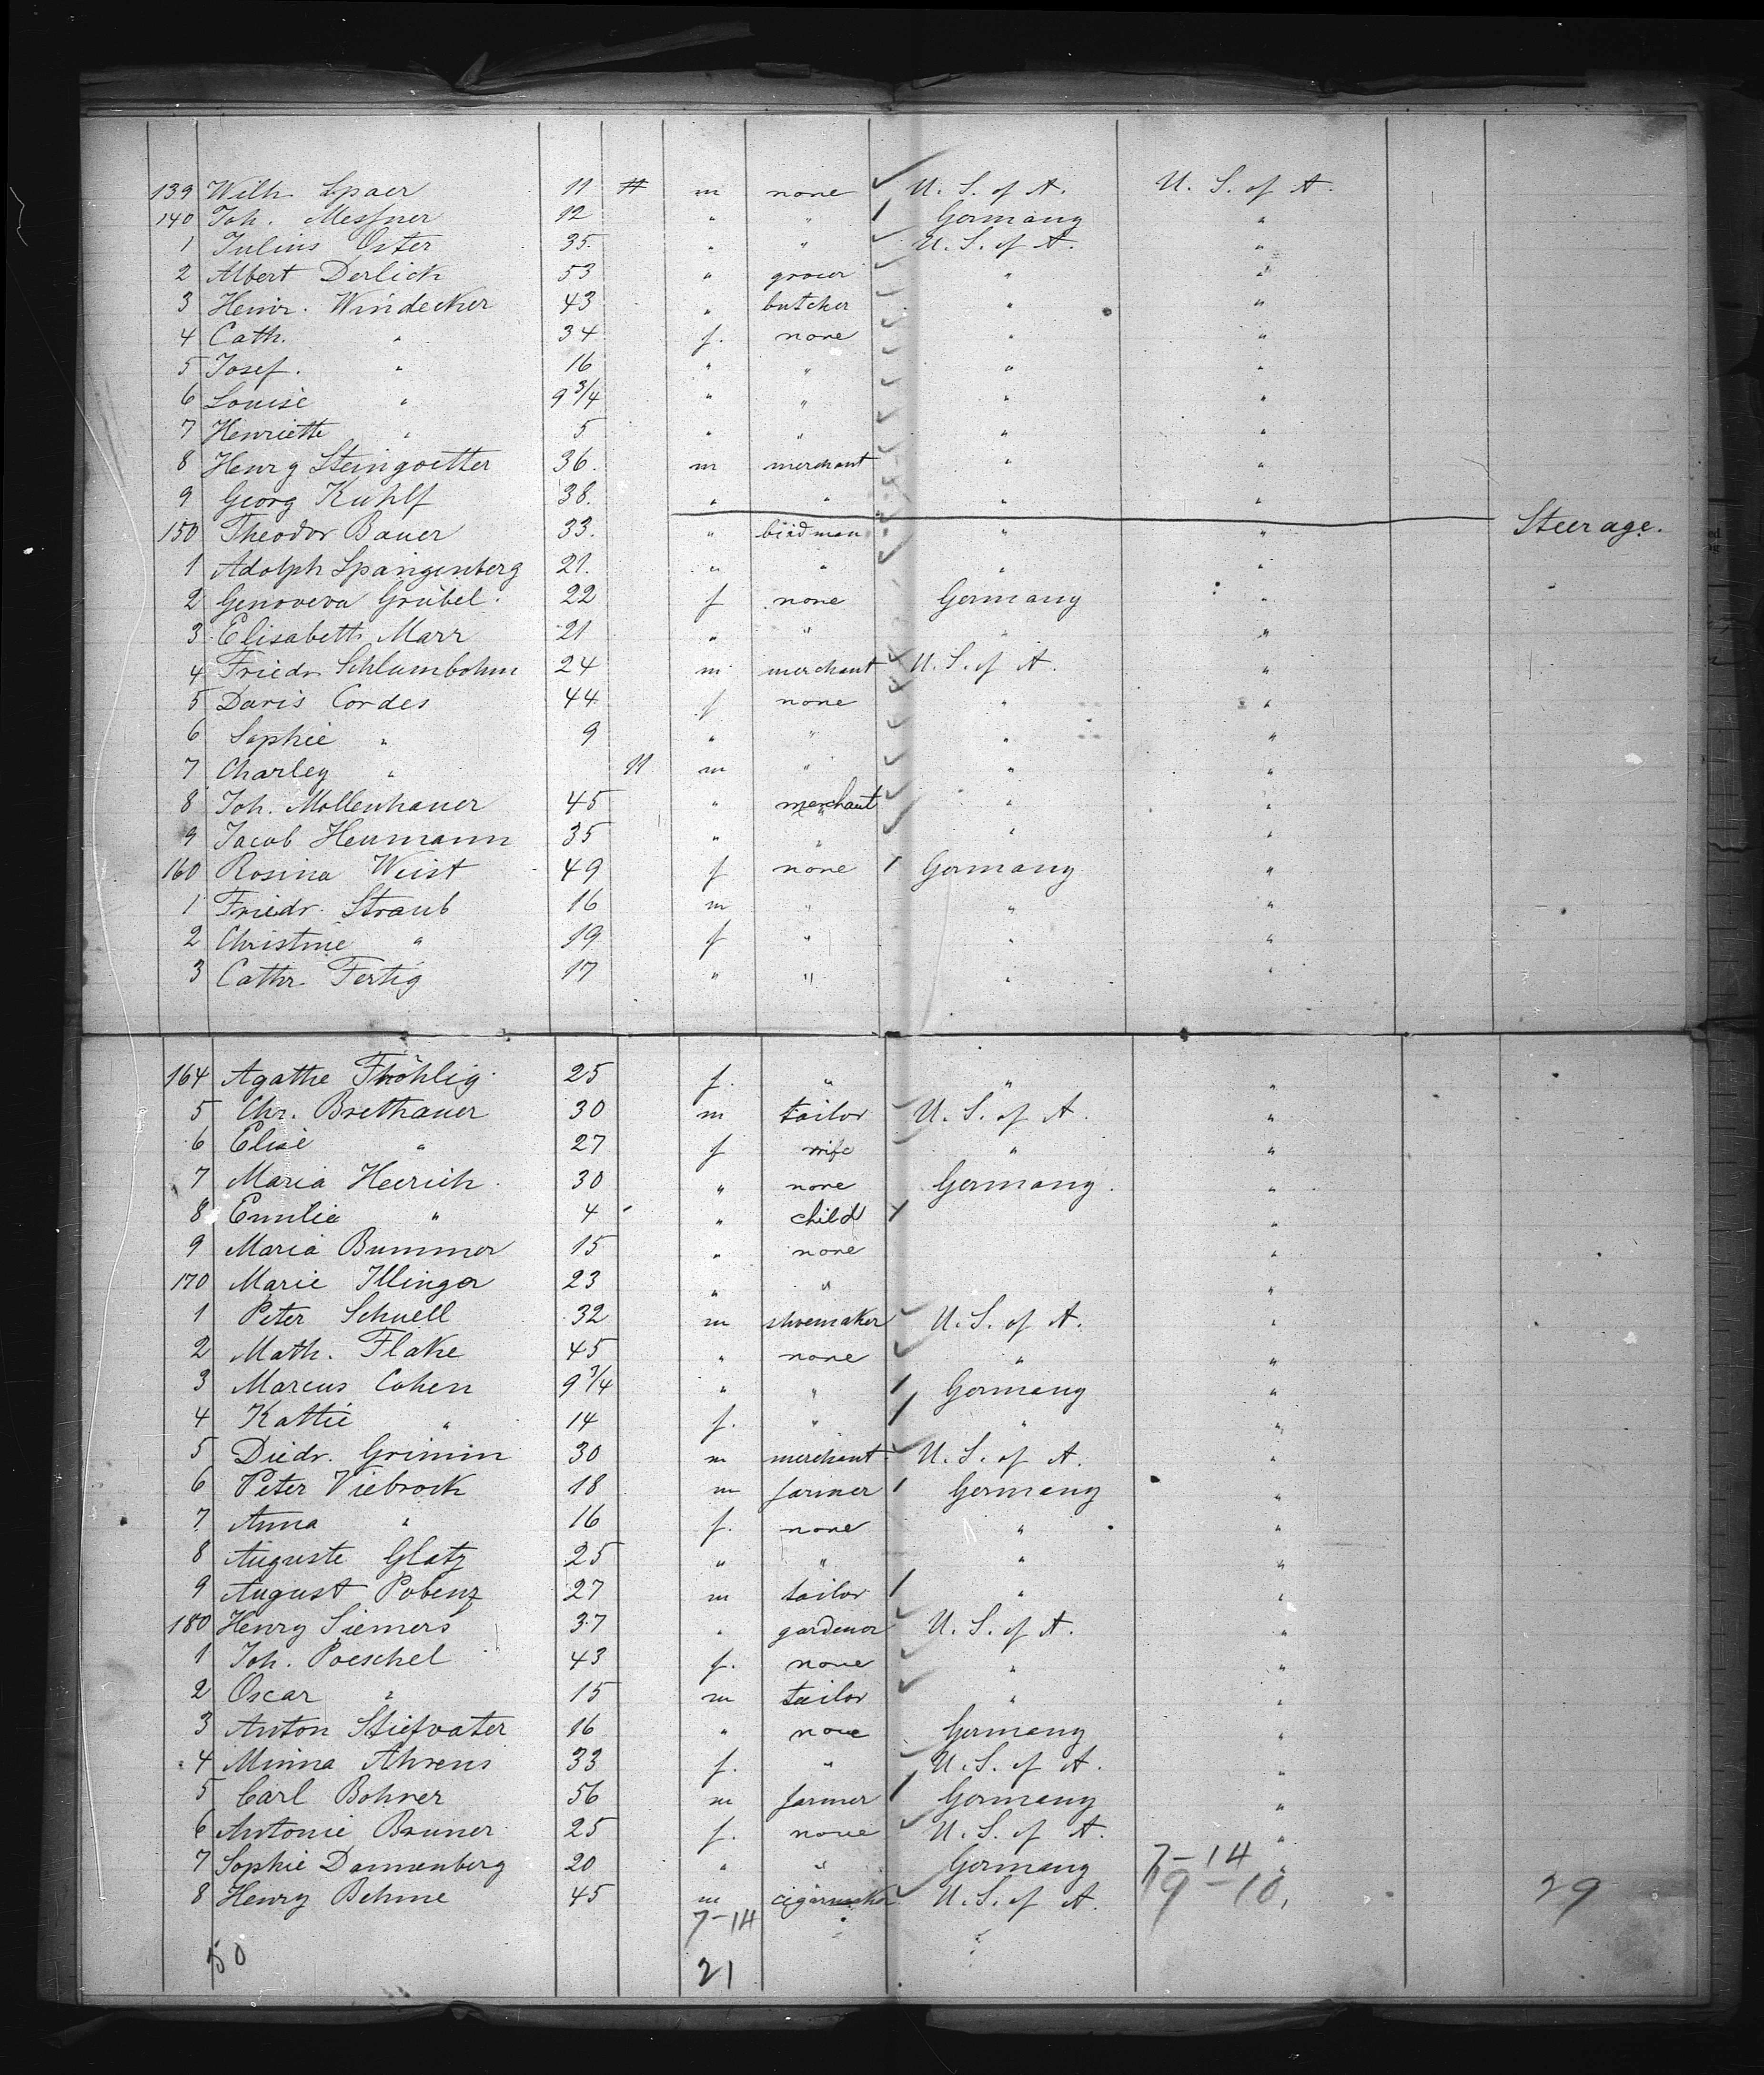 139 Wilh. Spaer 11 # m none ✓ U. S. of A. U. S. of A.
140 Joh. Messner 12 " " / Germany "
1 Julius Oster 35. " " ✓ U. S. of A. "
2 Albert Derlich 53 " grocer ✓ " "
3 Heinr. Windecker 43 " butcher ✓ " "
4 Cath. " 34 f. none ✓ " "
5 Josef. " 16 " " ✓ " "
6 Louise " 9 3/4 " " ✓ " "
7 Henriette " 5 " " ✓ " "
8 Henry Steingoetter 36. m merchant ✓ " "
9 Georg Kuhlf 38. " " " "
150 Theodor Bauer 33. " birdman " " Steerage.
1 Adolph Spangenberg 21. " " ✓ " "
2 Genoveva Grübel. 22 f none Germany "
3 Elisabeth Marr 21 " " " "
4 Friedr. Schlumbohm 24 m merchant ✓ U. S. of A. "
5 Doris Cordes 44 f none ✓ " "
6 Sophie " 9 " " ✓ " "
7 Charley " 11 m " ✓ " "
8 Joh. Mollenhauer 45 " merchant ✓ " "
9 Jacob Heumann 35 " " ✓ " "
160 Rosina Weist 49 f none / Germany "
1 Friedr. Straub 16 m " " "
2 Christine " 19 f " " "
3 Cathr. Fertig 17 " " " "
164 Agathe Fröhlig 25 f. " " "
5 Chr. Brethauer 30 m tailor ✓ U. S. of A. "
6 Elise " 27 f wife ✓ " "
7 Maria Heerich 30 " none Germany. "
8 Emilie " 4 " child "
9 Maria Bummer 15 " none "
170 Marie Illinger 23 " " "
1 Peter Schnell 32 m shoemaker ✓ U. S. of A. "
2 Math. Flake 45 " none ✓ " "
3 Marcus Cohen 9 3/4 " " / Germany "
4 Kattie " 14 f. " / " "
5 Diedr. Grimin 30 m merchant ✓ U. S. of A. "
6 Peter Viebrock 18 m farmer / Germany "
7 Anna " 16 f. none " "
8 Auguste Glatz 25 " " " "
9 August Pobenz 27 m tailor / " "
180 Henry Siemers 37 " gardenor ✓ U. S. of A. "
1 Joh. Poeschel 43 f. none ✓ " "
2 Oscar " 15 m tailor ✓ " "
3 Anton Stiefvater 16 " none Germany "
4 Minna Ahrens 33 f. " ✓ U. S. of A. "
5 Carl Bohner 56 m farmer / Germany "
6 Antonie Bruner 25 f. none ✓ U. S. of A. "
7 Sophie Dannenberg 20 " " Germany 7-14 "
8 Henry Behme 45 m cigarmaker ✓ U. S. of A. 19-10, 29
7-14
50 21